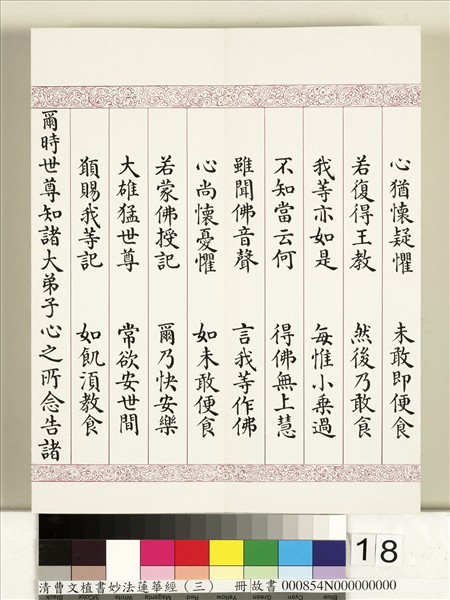 心猶懷疑懼　未敢即便食
若復得王教　然後乃敢食
我等亦如是　每惟小乘過
不知當云何　得佛無上慧
雖聞佛音聲　言我等作佛
心尚懷憂懼　如未敢便食
若蒙佛授記　爾乃快安樂
大雄猛世尊　常欲安世間
願賜我等記　如飢須教食
爾時世尊知諸大弟子心之所念告諸
18
清曹文植書妙法蓮華經（三）　冊 故書 000854N000000000